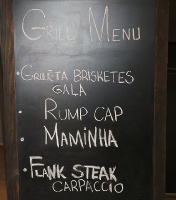 GRILL MENU
• GRILLETA BRISKETES
GALA
• RUMP CAP
• MAMINHA
• FLANK STEAK
CARPACCIO